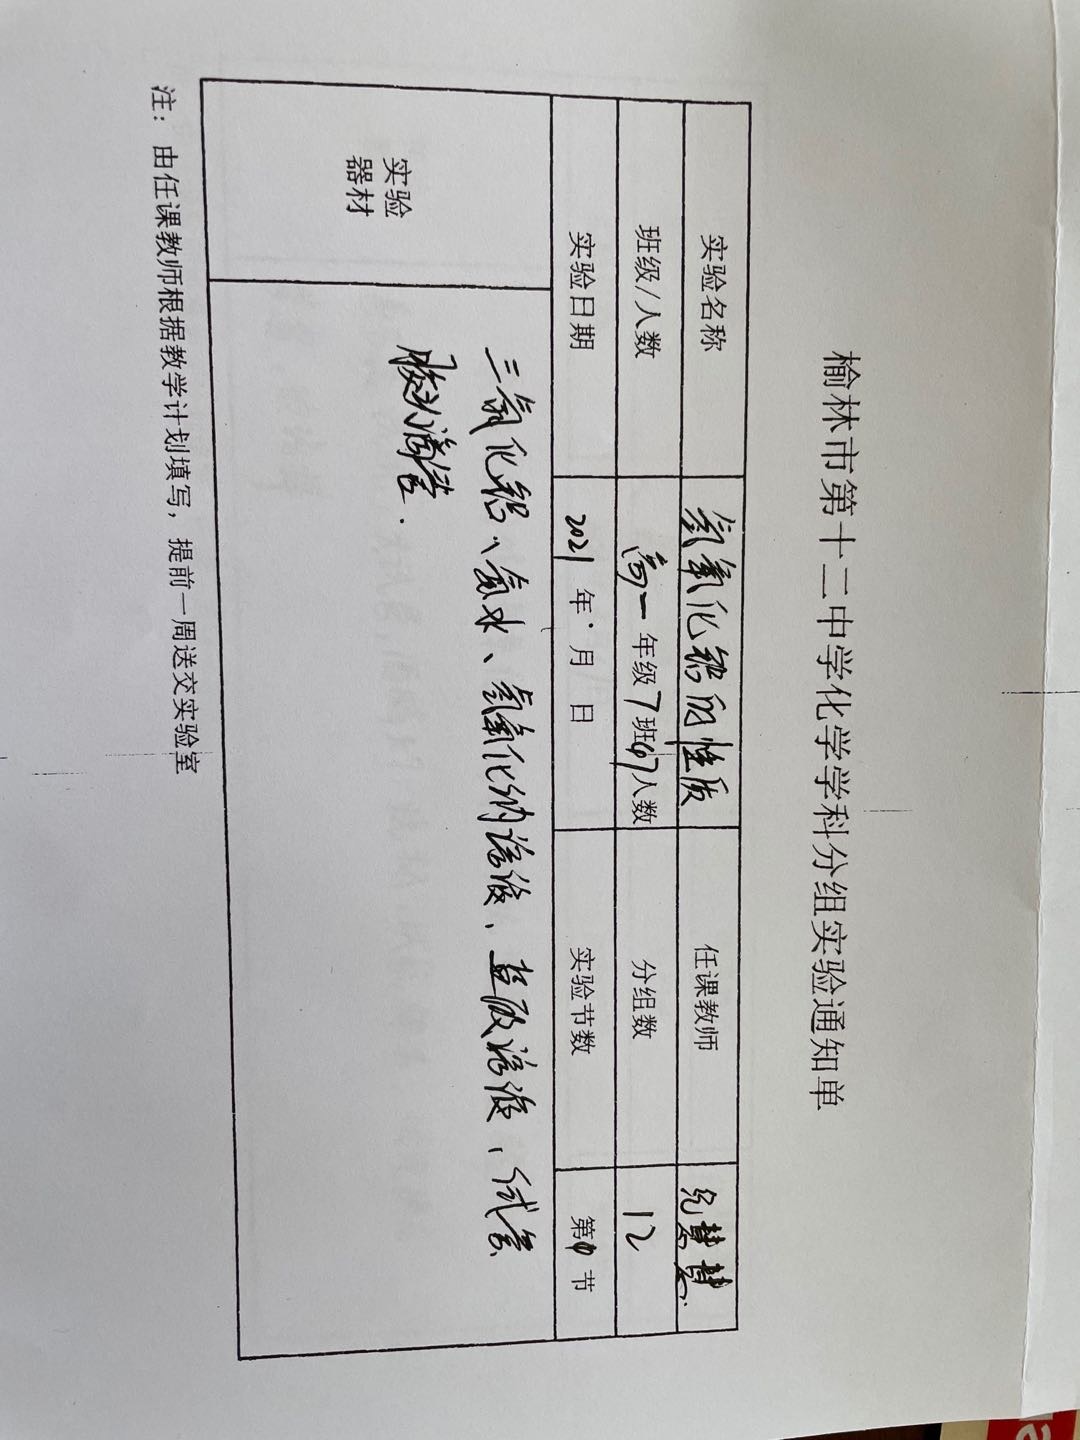 榆林市第十二中学化学学科分组实验通知单
实验名称 氢氧化铝的性质 任课教师 慧慧
班级/人数 高一年级7班47人数 分组数 12
实验日期 2021年 月 日 实验节数 第 节
实验器材
三氯化铝、氨水、氢氧化钠溶液、盐酸溶液、试管
胶头滴管.
注：由任课教师根据教学计划填写，提前一周送交实验室